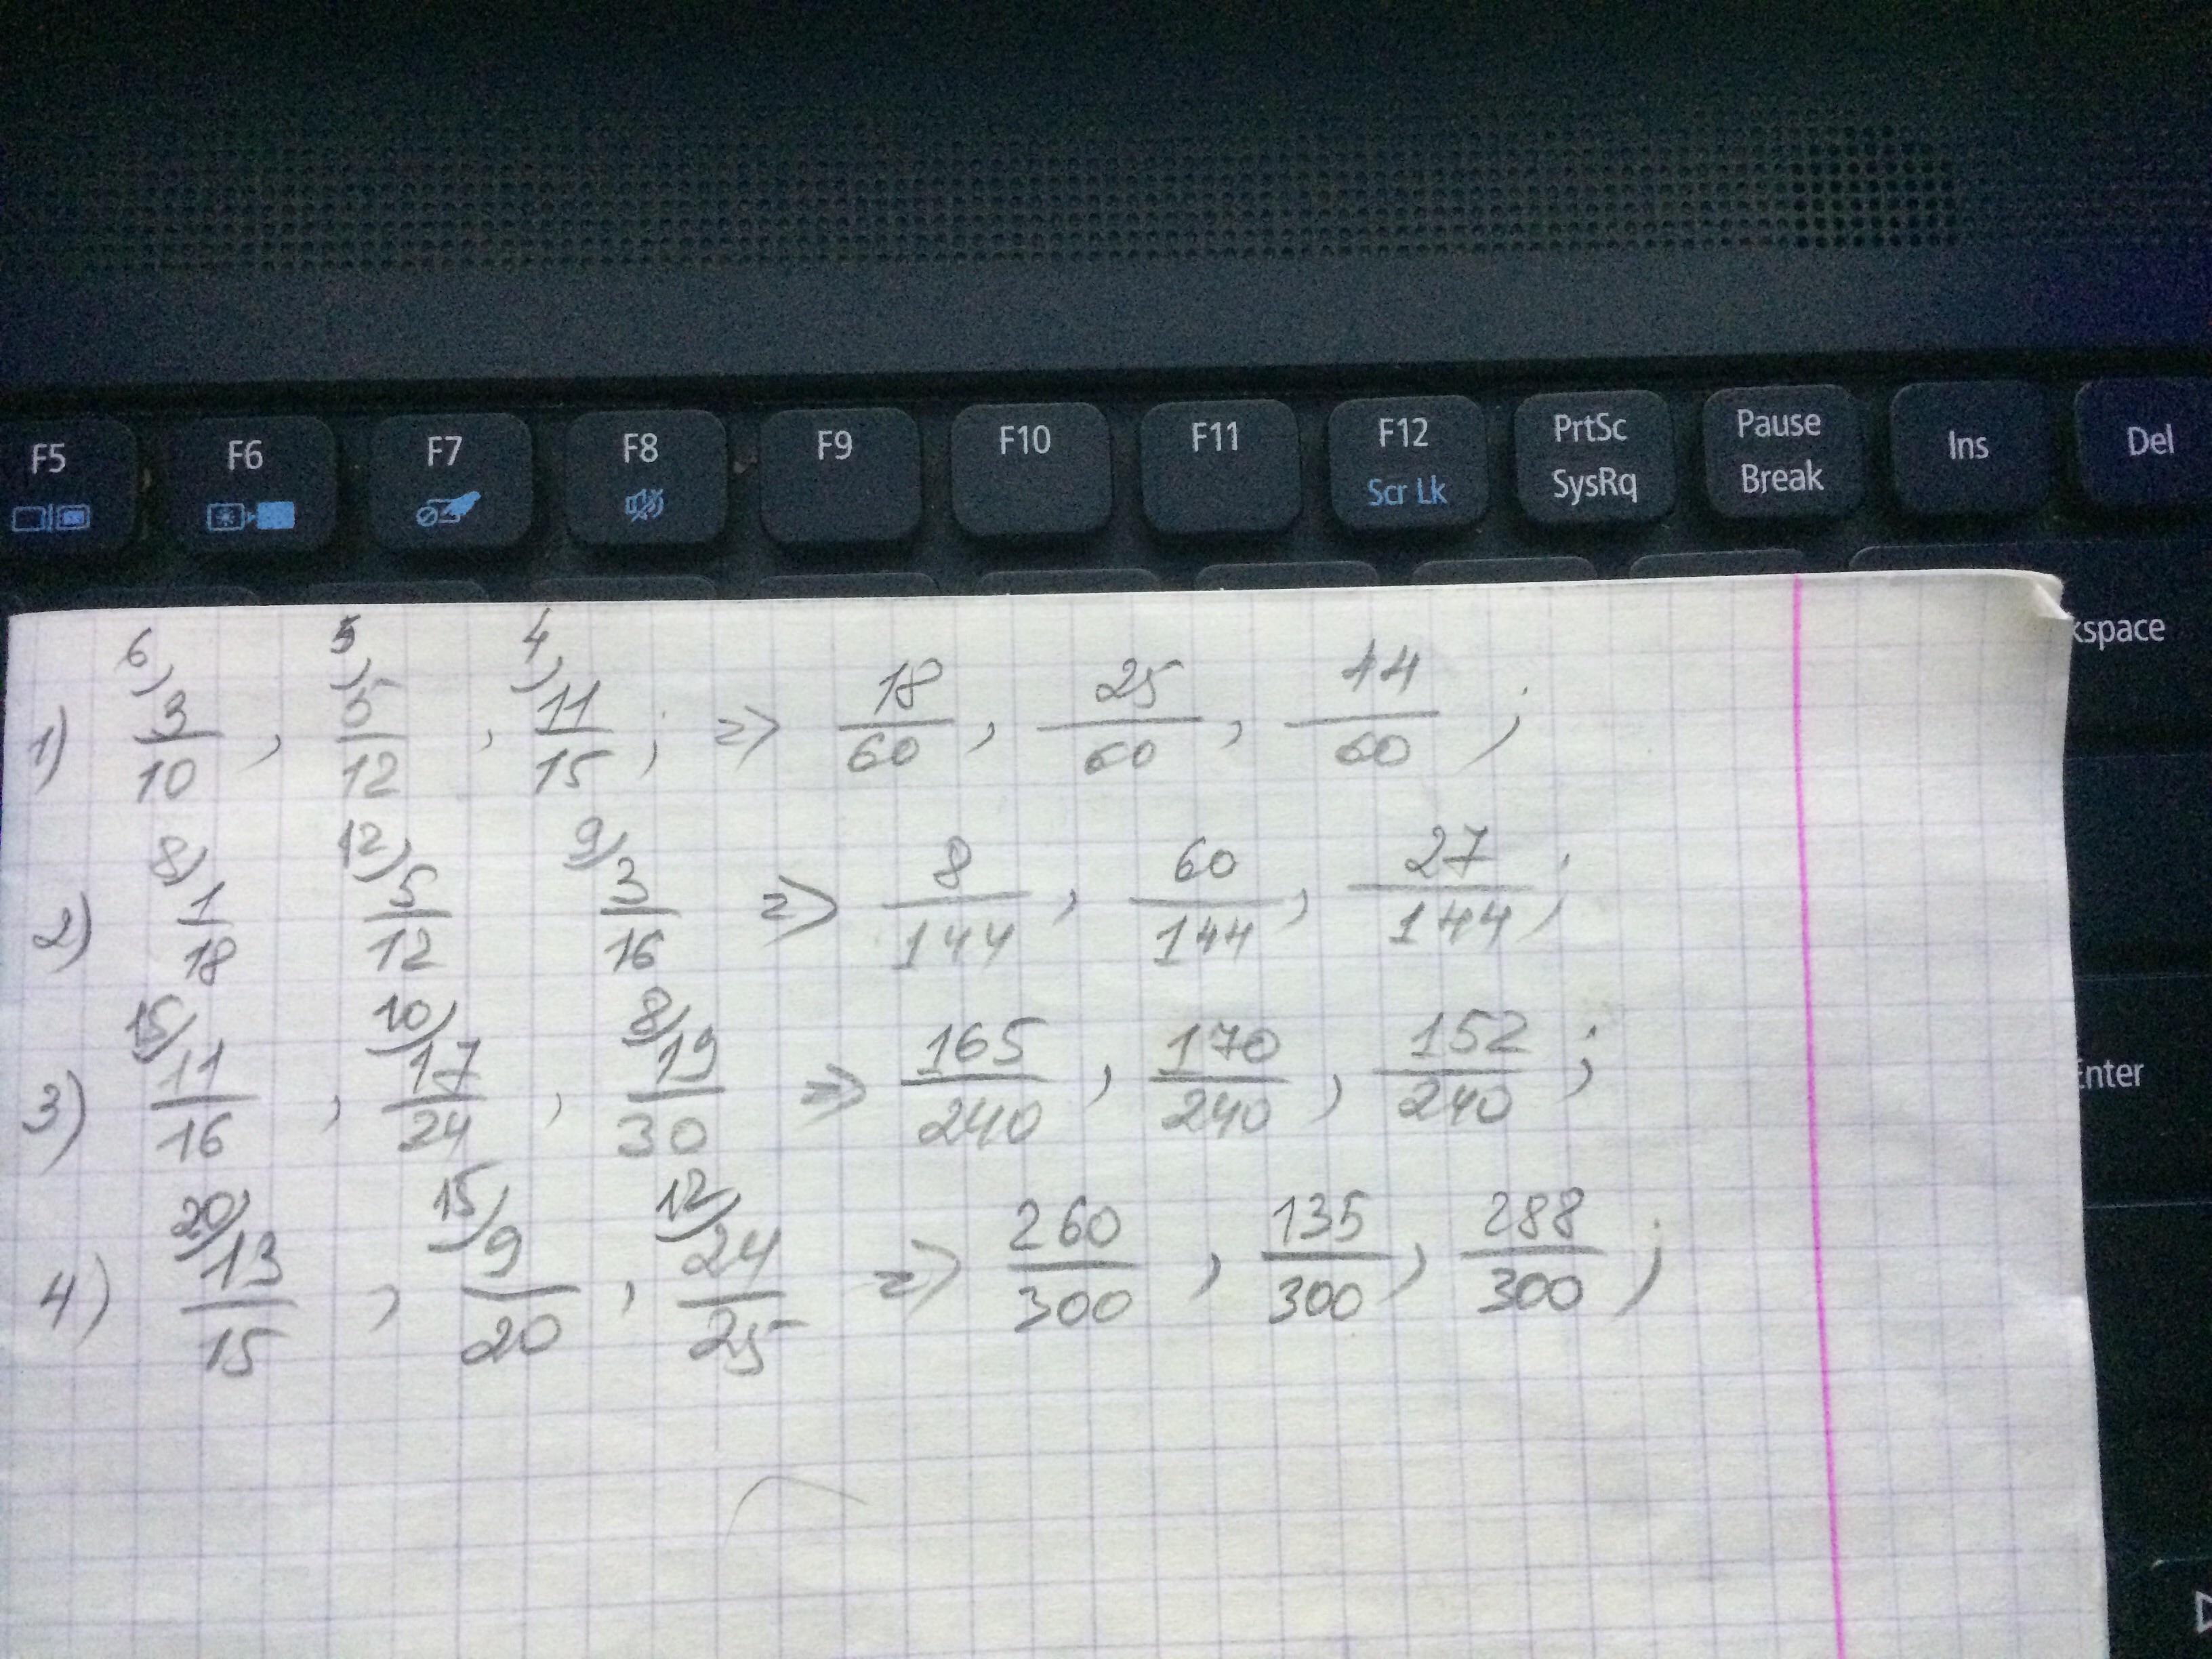 F5 F6 F7 F8 F9 F10 F11 F12 PrtSc Pause Ins Del
Scr Lk SysRq Break
kspace
1) 6) 3/10 , 5) 5/12 , 4) 11/15 ; => 18/60 , 25/60 , 44/60 ;
2) 8) 1/18 12) 5/12 9) 3/16 => 8/144 , 60/144 , 27/144 ;
3) 15) 11/16 , 10) 17/24 , 8) 19/30 => 165/240 , 170/240 , 152/240 ;
Enter
4) 20) 13/15 , 15) 9/20 , 12) 24/25 => 260/300 , 135/300 , 288/300 ;